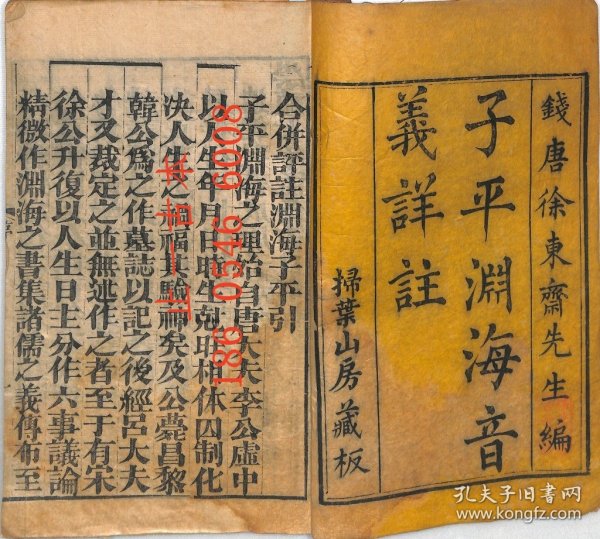 錢唐徐東齋先生編
子平淵海音
義詳註
掃葉山房藏板
合併評註淵海子平引
子平淵海之理始自唐大夫李公虛中
以人生年月日時生剋旺相休囚制化
決人生之禍福其驗神矣及公薨昌黎
韓公爲之作墓誌以記之後經呂大夫
才又裁定之並無述作之者至于有宋
徐公升復以人生日主分作六事議論
精微作淵海之書集諸儒之義傳布至
止一古本
186 0546 6008
孔夫子旧书网
www.kongfz.com